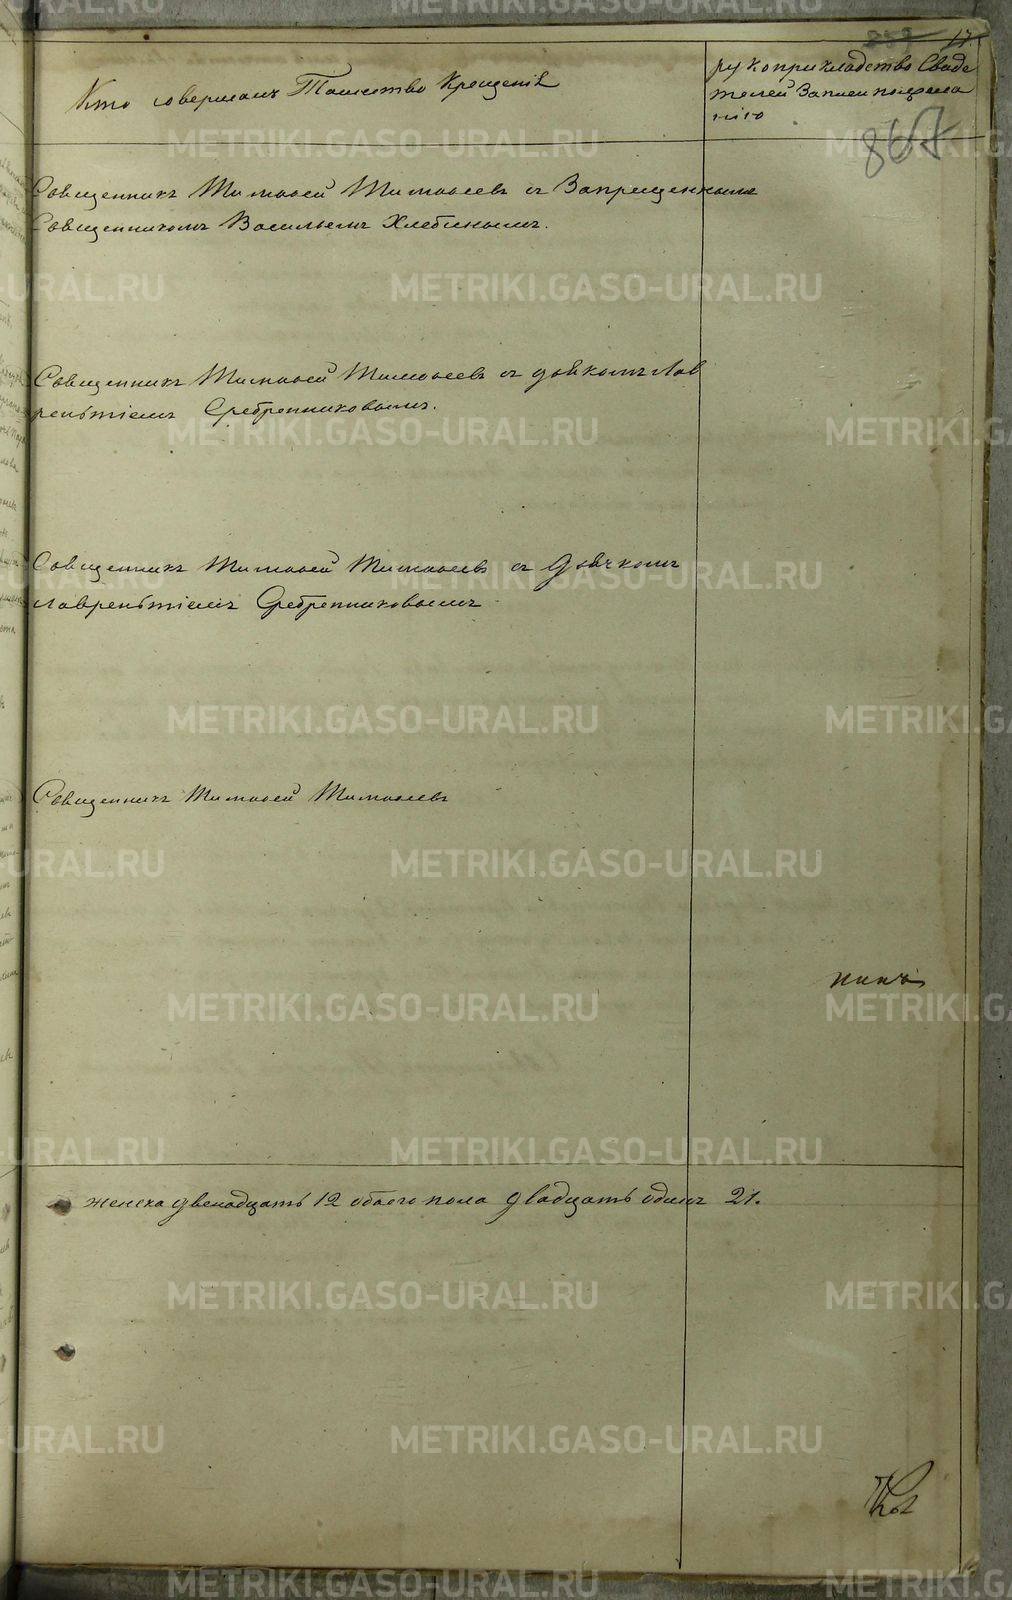 17
867
Кто совершалъ Таинство Крещенія
рукоприкладство Свиде
телей Записи пожела
нію
Священникъ Тимофей Тимофеевъ съ Запрещеннымъ
Священникомъ Васильемъ Хлебинымъ.
Священникъ Тимофей Тимофеевъ съ дьякомъ Лав
рентіемъ Сребренниковымъ.
Священникъ Тимофей Тимофеевъ съ Дьячкомъ
Лаврентіемъ Сребренниковымъ
Священникъ Тимофей Тимофеевъ
женска двенадцать 12 обоего пола двадцать одинъ 21.
METRIKI.GASO-URAL.RU